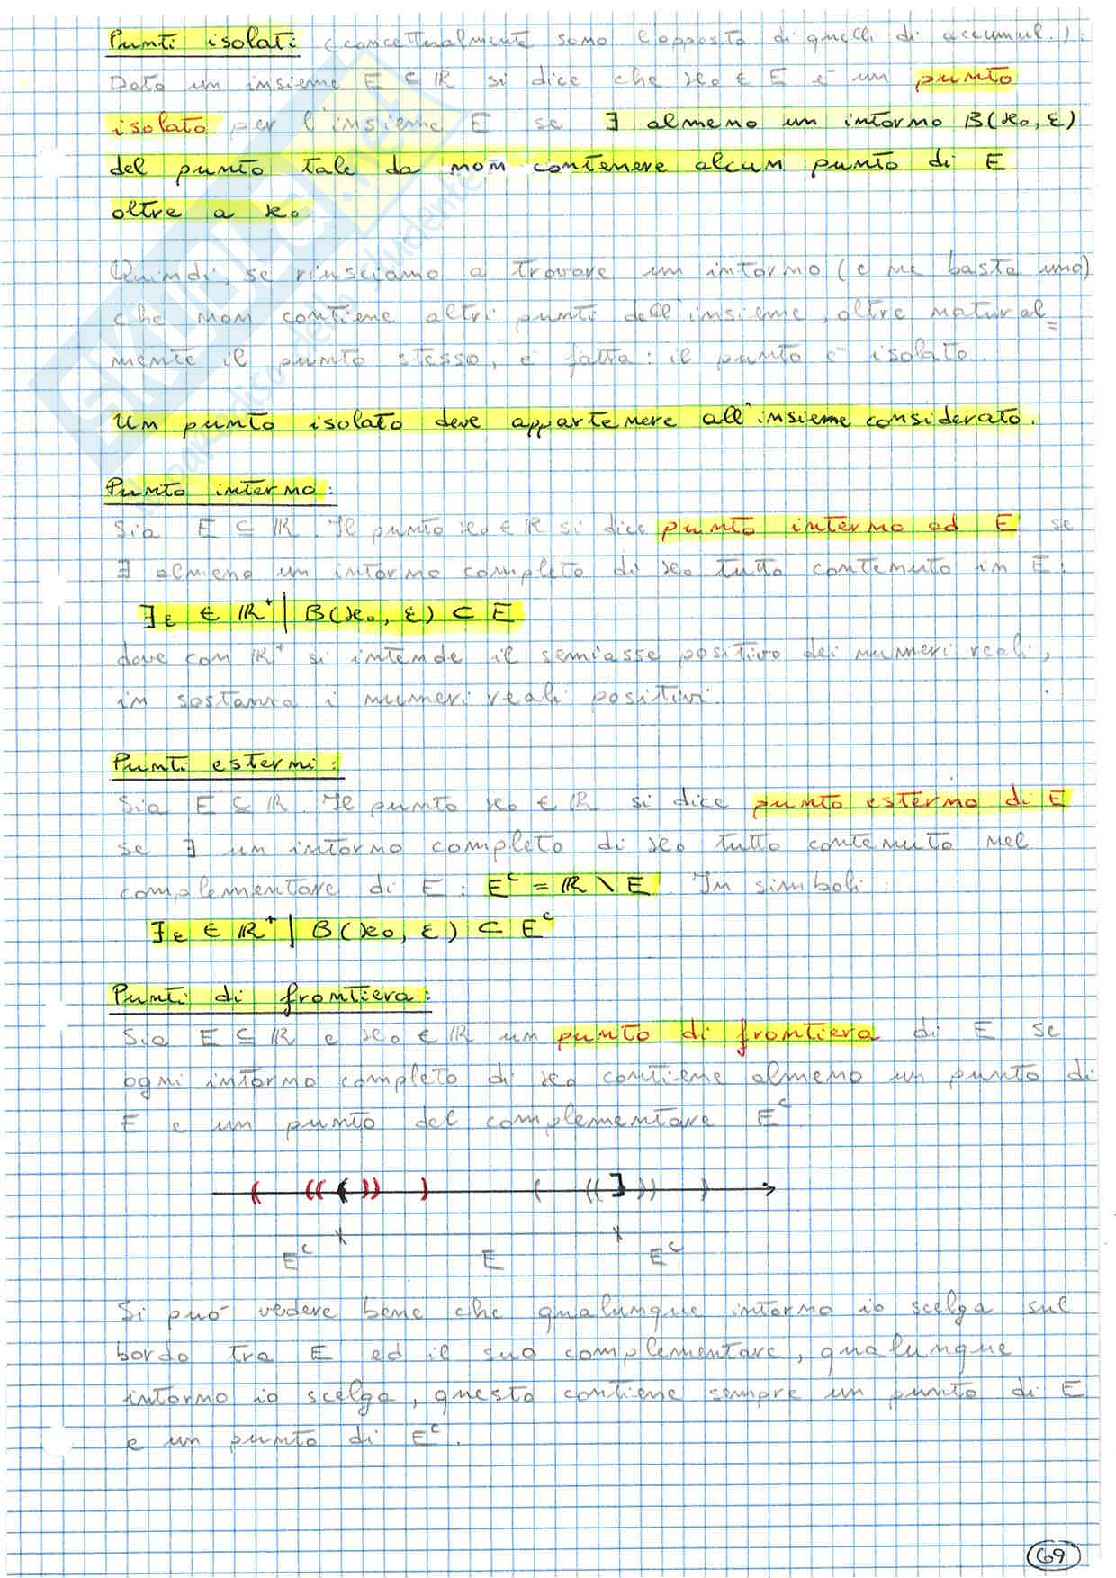 Punti isolati: (concettualmente sono l'opposto di quelli di accumul.).
Dato un insieme E ⊆ ℝ si dice che x₀ ∈ E è un punto
isolato per l'insieme E se ∃ almeno un intorno B(x₀, ε)
del punto tale da non contenere alcun punto di E
oltre a x₀
Quindi, se riusciamo a trovare un intorno (e ne basta uno)
che non contiene altri punti dell'insieme, oltre natural=
mente il punto stesso, è fatta: il punto è isolato.
Un punto isolato deve appartenere all'insieme considerato.
Punto interno:
Sia E ⊆ ℝ. Il punto x₀ ∈ ℝ si dice punto interno ad E se
∃ almeno un intorno completo di x₀ tutto contenuto in E:
∃ε ∈ ℝ⁺ | B(x₀, ε) ⊂ E
dove con ℝ⁺ si intende il semiasse positivo dei numeri reali,
in sostanza i numeri reali positivi.
Punti esterni:
Sia E ⊆ ℝ. Il punto x₀ ∈ ℝ si dice punto esterno di E
se ∃ un intorno completo di x₀ tutto contenuto nel
complementare di E: Eᶜ = ℝ \ E. In simboli:
∃ε ∈ ℝ⁺ | B(x₀, ε) ⊂ Eᶜ
Punti di frontiera:
Sia E ⊆ ℝ e x₀ ∈ ℝ un punto di frontiera di E se
ogni intorno completo di x₀ contiene almeno un punto di
E e un punto del complementare Eᶜ
( (( ( )) ) ( (( ] )) )
Eᶜ E Eᶜ
Si può vedere bene che qualunque intorno io scelga sul
bordo tra E ed il suo complementare, qualunque
intorno io scelga, questo contiene sempre un punto di E
e un punto di Eᶜ.
69